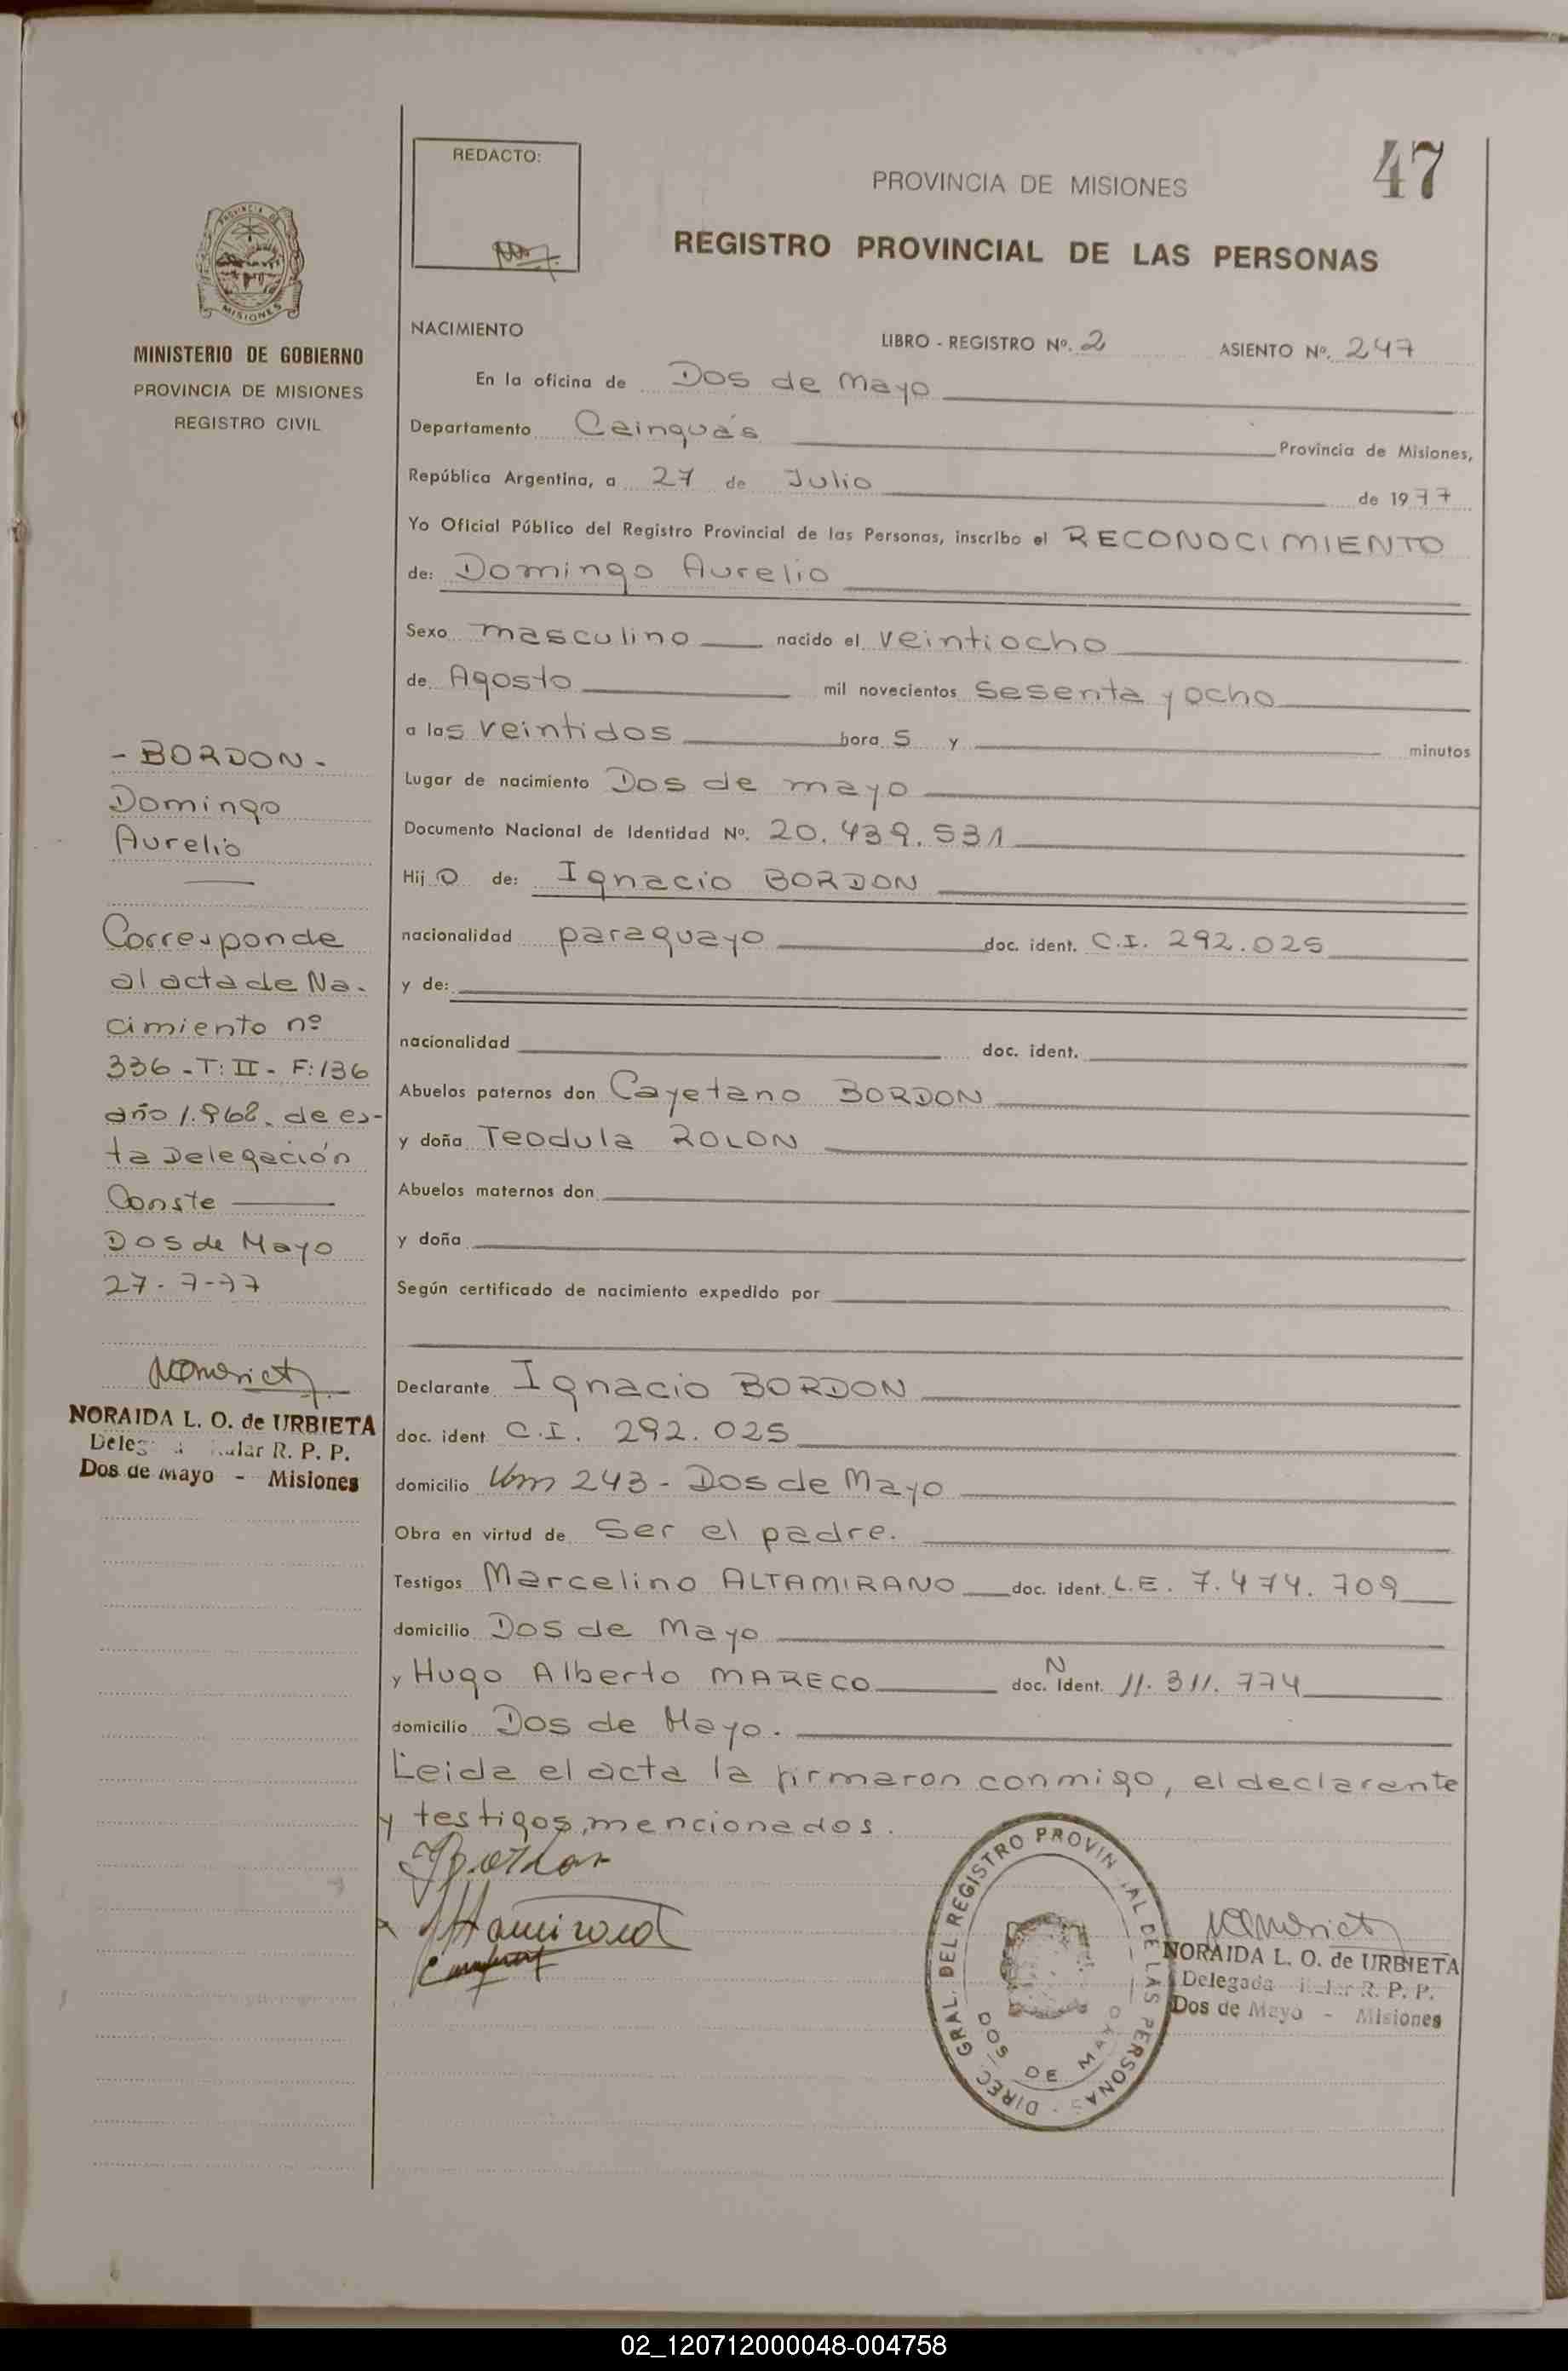 47
REDACTO:
PROVINCIA DE MISIONES
REGISTRO PROVINCIAL DE LAS PERSONAS
MINISTERIO DE GOBIERNO
PROVINCIA DE MISIONES
REGISTRO CIVIL
NACIMIENTO LIBRO - REGISTRO Nº. 2 ASIENTO Nº. 247
En la oficina de Dos de Mayo
Departamento Cainguás Provincia de Misiones,
República Argentina, a 27 de Julio de 1977
Yo Oficial Público del Registro Provincial de las Personas, inscribo el RECONOCIMIENTO
de: Domingo Aurelio
Sexo masculino nacido el veintiocho
de Agosto mil novecientos sesenta y ocho
a las veintidos hora s y minutos
Lugar de nacimiento Dos de mayo
Documento Nacional de Identidad Nº. 20.439.531
Hij o de: Ignacio BORDON
nacionalidad paraguayo doc. ident. C.I. 292.025
y de:
nacionalidad doc. ident.
Abuelos paternos don Cayetano BORDON
y doña Teodula ROLON
Abuelos maternos don
y doña
Según certificado de nacimiento expedido por
Declarante Ignacio BORDON
doc. ident C.I. 292.025
domicilio Km 243 - Dos de Mayo
Obra en virtud de Ser el padre.
Testigos Marcelino ALTAMIRANO doc. ident. L.E. 7.474.709
domicilio Dos de Mayo
y Hugo Alberto MARECO doc. N ident. 11.311.774
domicilio Dos de Mayo.
Leida el acta la firmaron conmigo, el declarante
y testigos, mencionados.
- BORDON -
Domingo
Aurelio
Corresponde
al acta de Na-
cimiento nº
336 - T: II - F: 136
año 1.968. de es-
ta Delegación
Conste
Dos de Mayo
27-7-77
NORAIDA L. O. de URBIETA
R. P. P.
Dos de Mayo - Misiones
DIREC. GRAL. DEL REGISTRO PROVIN AL DE LAS PERSONAS
DOS DE MAYO
NORAIDA L. O. de URBIETA
Delegada R. P. P.
Dos de Mayo - Misiones
02_120712000048-004758